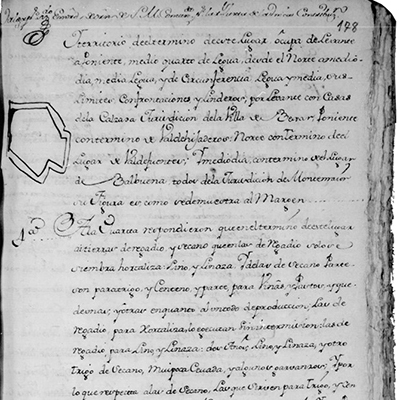 148
territorio del termino de este Lugar ocupa de Levante
a Poniente, medio quarto de Legua, desde el Norte a medio
dia, media Legua, y de Circunferencia Legua y media, sus
Limites Confrontaciones y Linderos, por Levante con Casas
de la Calzada Jurisdicion de la Villa de Bexar: Poniente
con termino de Valdehijaderos: Norte con Termino del
Lugar de Valdefuentes, Y mediodia, con termino del Lugar
de Balbuena todos de la Jurisdicion de Montemaior
su Figura es como se demuestra al Margen
4ª A la Quarta respondieron que en el termino de este Lugar
ai tierras de regadio, y Secano que en las de Regadio solo se
siembra hortaliza Lino, y Linaza, Y a las de Secano Parte
son para trigo, y Centeno, y parte, para Viñas, y Pastos, y que
de unas, y otras en quanto a un todo de produccion, Las de
Regadio, para Hortaliza lo executan sin intermision las de
Regadio para Lino, y Linaza: dos Años, Lino, y Linaza, y otro
Trigo de Secano, y algunos garvanzos, Y por
lo que respecta a las de Secano, Las que sirven para trigo, y Cen